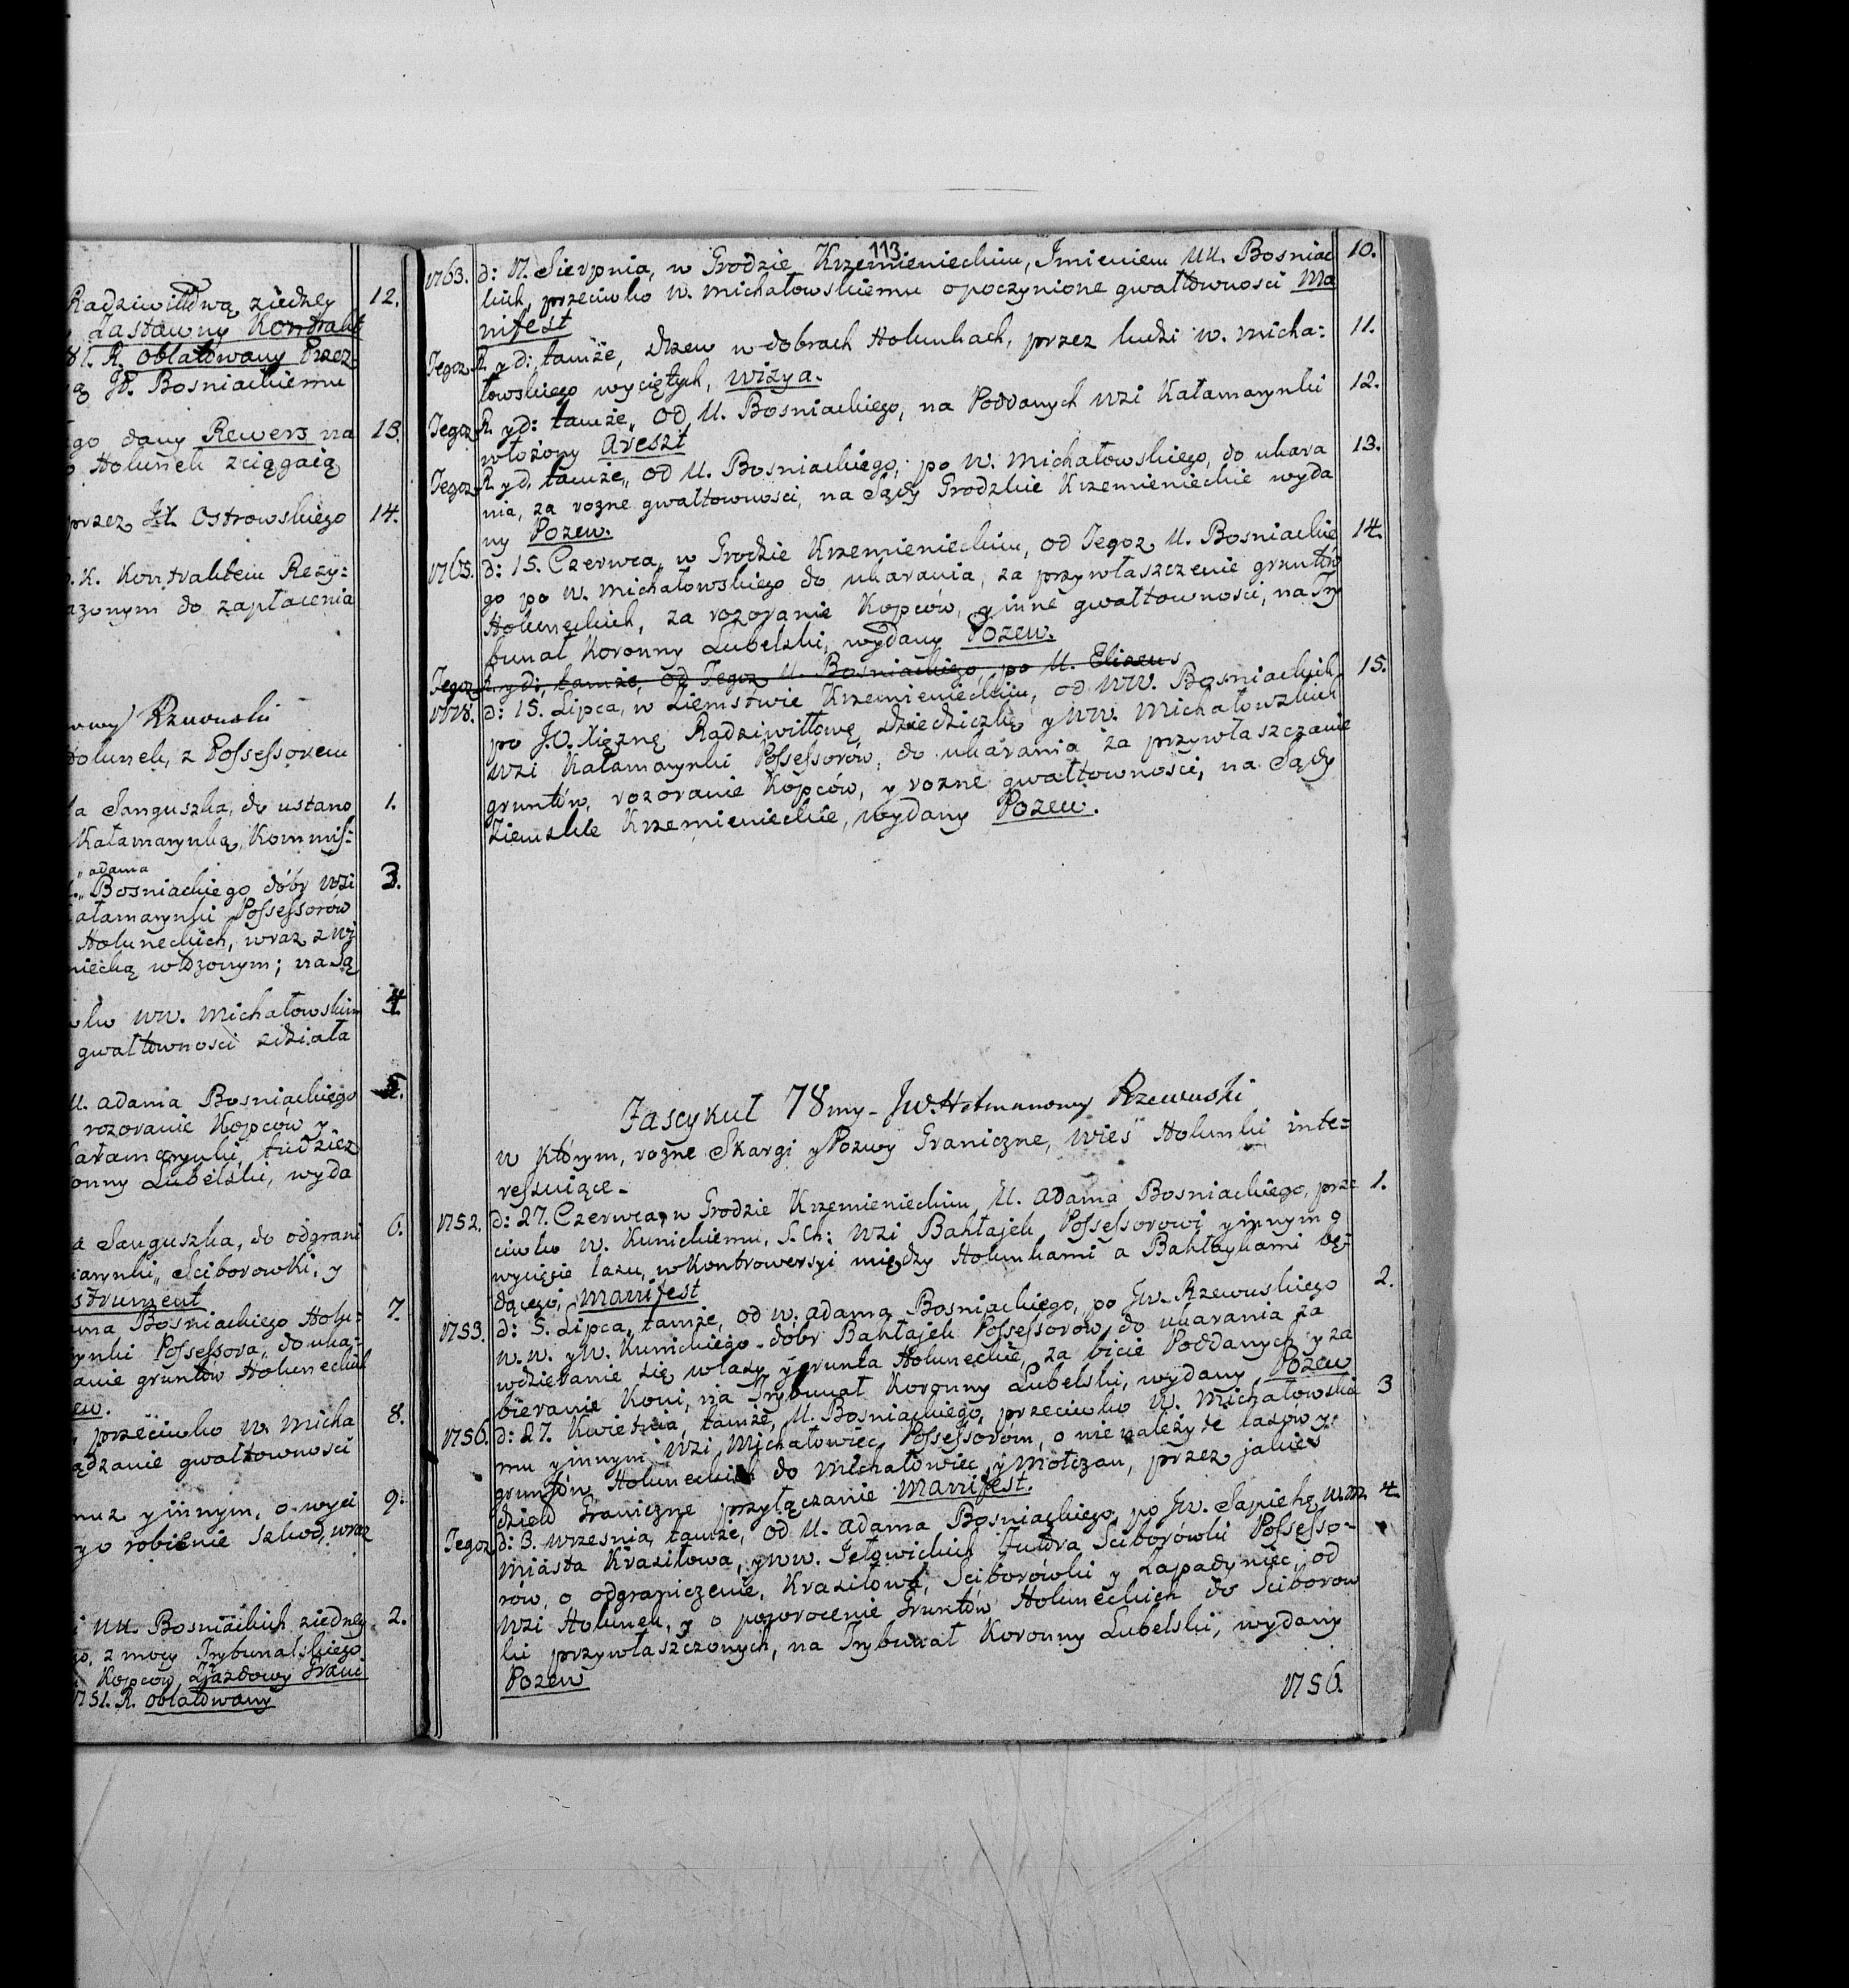 Radziwiłłwą ziedney 12.
Zastawny Kontrakt
R. oblatowany Przez
Bosniackiemu
dany Rewers na 13.
Holunek zciągaią
przez Jł. Ostrowskiego 14.
K. Kontraktem Rezy:
do zapłacenia
Rzewuski
Holunek, z Possessorem
Sanguszka, do ustano 1.
Kałamarynką, Kommis:
adama
Bosniackiego dóbr wzi 3.
Possessorów
Holuneckich, wraz z wi
włożonym; na Są
ww. Michałowskim 4.
gwałtownosci zdziała
U. adama Bosniackiego 5.
rozoranie Kopców y
tudziez
Lubelski, wyda
Sanguszka, do odgrani 6.
Sciborowki, y
strument
Bosniackiego Holu: 7.
Possessora, do uka:
gruntów Holuneckich
przeciwko w. Micha 8.
gwałtownosci
y innym, o wyci 9.
y o robienie szkod, wraz
UU. Bosniackich ziedney 2.
z mocy Trybunalskiego
Kopców Zjazdowy Grani
1751. R. oblatowany
113.
1763. d: 17. Sierpnia, w Grodzie Krzemienieckim, Imieniem UU. Bosniac 10.
kich, przeciwko w. Michałowskiemu o poczynione gwałtownosci Ma
nifest
Tegoz R. y d: tamże, drzew w dobrach Holunkach, przez ludzi w. Micha: 11.
łowskiego wyciętych, Wizya.
Tegoz R. y d: tamże, od U. Bosniackiego, na Poddanych wzi Kałamarynki 12.
włożony Areszt
Tegoz R y d. tamże, od U. Bosniackiego, po w. Michałowskiego, do ukara 13.
nia, za rozne gwałtownosci, na Sądy Grodzkie Krzemienieckie wyda
ny Pozew.
1765. d: 15. Czerwca, w Grodzie Krzemienieckim, od Tegoz U. Bosniackie 14.
go po w. Michałowskiego do ukarania, za przywłaszczenie gruntów
Holuneckich, za rozoranie Kopców, y inne gwałtownosci, na Try
bunał Koronny Lubelski, wydany Pozew.
Tegoz R. y d:, tamże, od Tegoz U. Bosniackiego, po U. Elizeus
1778. d: 15. Lipca, w Ziemstwie Krzemienieckim, od WW. Bosniackich 15.
po J.O. Xiężnę Radziwiłłowę Dziedziczkę y WW. Michałowskich
wzi Kałamarynki Possessorów, do ukarania za przywłaszczanie
gruntów, rozoranie Kopców, y rozne gwałtownosci, na Sądy
Ziemskie Krzemienieckie, wydany Pozew.
Fascykuł 78my - Jw. Hetmanowny Rzewuski
w którym, rozne Skargi y Pozwy Graniczne, wieś Holunki inte:
ressuiące -
1752. d: 27. Czerwca, w Grodzie Krzemienieckim U. adama Bosniackiego, prze 1.
ciwko w. Kunickiemu, S. Ch: wzi Bahłajek Possessorowi y innym o
wycięcie lasu, w Kontrowersyi między Holunkami a Bahłaykami bę:
dącego, Manifest
1753. d: 5. Lipca, tamże, od w. adama Bosniackiego, po Jw. Rzewuskiego 2.
w. w. y w. Kunickiego dobr Bahłajek Possessorow, do ukarania za
wdzieranie się w lasy y grunta Holuneckie, za bicie Poddanych y za
bieranie Koni, na Trybunał Koronny Lubelski, wydany Pozew
1756. d: 27. Kwietnia, tamże, U. Bosniackiego, przeciwko w. Michałowskie 3
mu y innym wzi Michałowiec Possessorom, o nienależyte lasów y
gruntów Holuneckich do Michałowiec y Mołczan, przez jakies
dzieło Graniczne przyłączanie Manifest.
Tegoz d: 3. Wrzesnia, tamże, od U. adama Bosniackiego, po Jw. Sapiehę 4.
Miasta Krasiłowa, y ww. Jełowickich Futora Sciborówki Possesso-
rów, o odgraniczenie, Krasiłowa, Sciborówki y Zapadyniec, od
wzi Holunek, y o powrocenie Gruntów Holuneckich do Sciborow
ki przywłaszczonych, na Trybunał Koronny Lubelski, wydany
Pozew
1756.